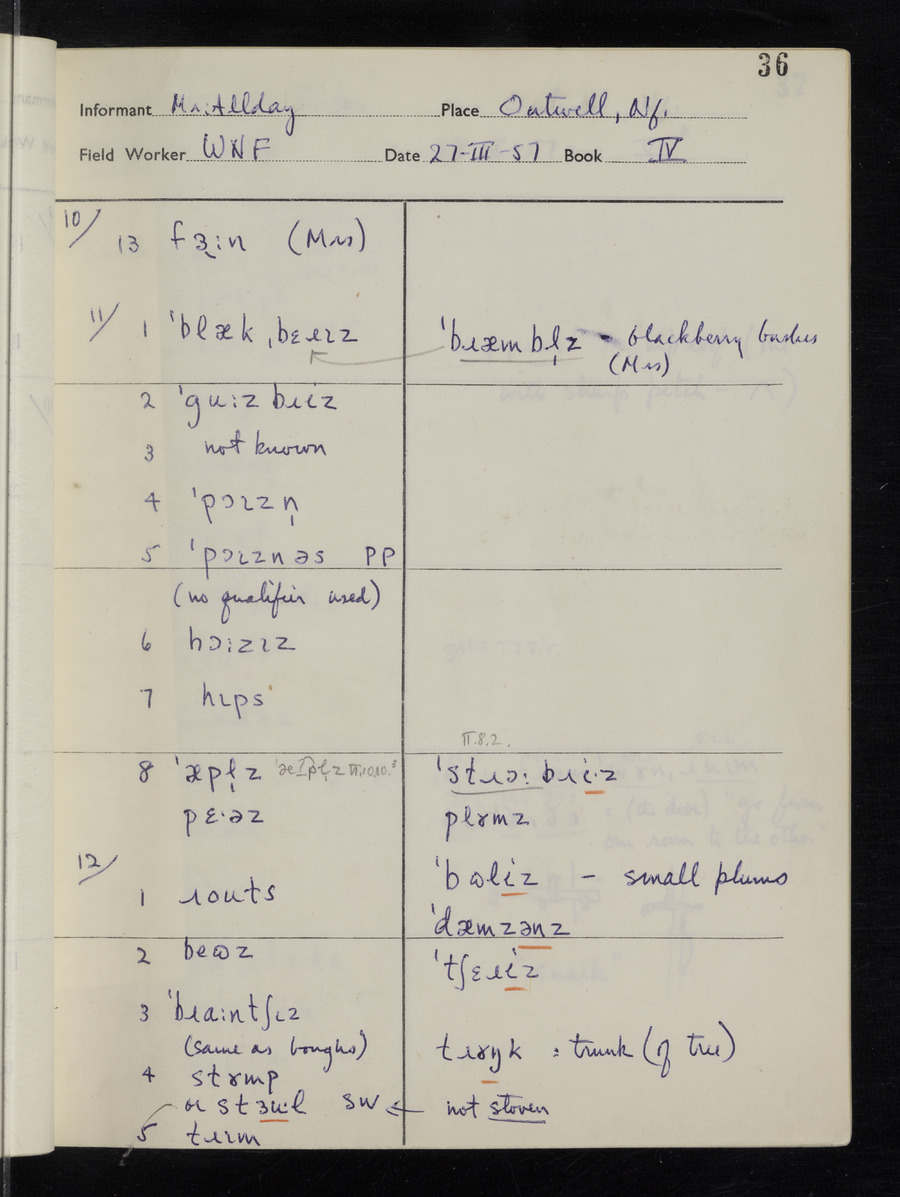 36
Informant Mr. Allday Place Outwell, Nf.
Field Worker WNF Date 27-III-57 Book IV
10/ 13 fɜ̢ːn (Mrs)
11/ 1 ˈblæk ˌbɛɹɪz ˈbɹæmbl̩z - blackberry bushes
(Mrs)
2 ˈguːzbɹɪz
3 not known
4 ˈpɔɪzn̩
5 ˈpɔɪznəs PP
(no qualifier used)
6 hɔːzɪz
7 hɪps
II.8.2.
8 ˈæpl̩z ˈstɹɔːbɹiˑz
pɛˑəz plɤmz
12/ ˈbʊliz - small plums
1 ɹouts
ˈdæmzənz
2 beʊz
ˈtʃɛɹiz
3 ˈbɹaːntʃɪz
(same as boughs) tɹɤŋk : trunk (of tree)
4 stɤmp
or stɜuˑl SW ← not stoven
5 tɹɪm